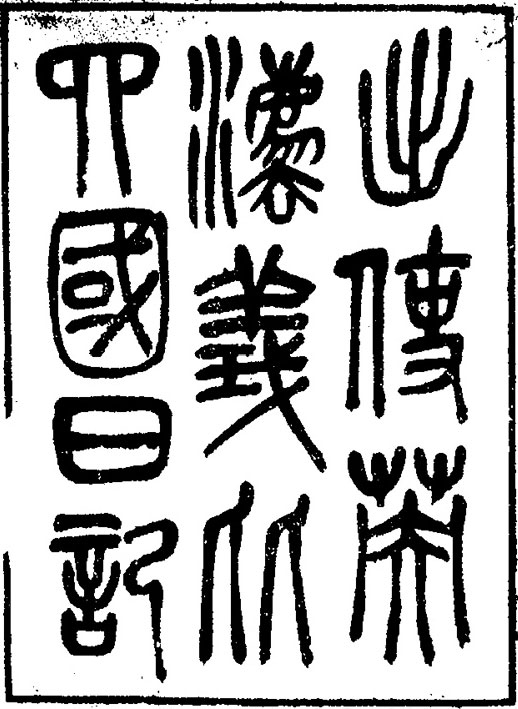 出使英
法義比
四國日記